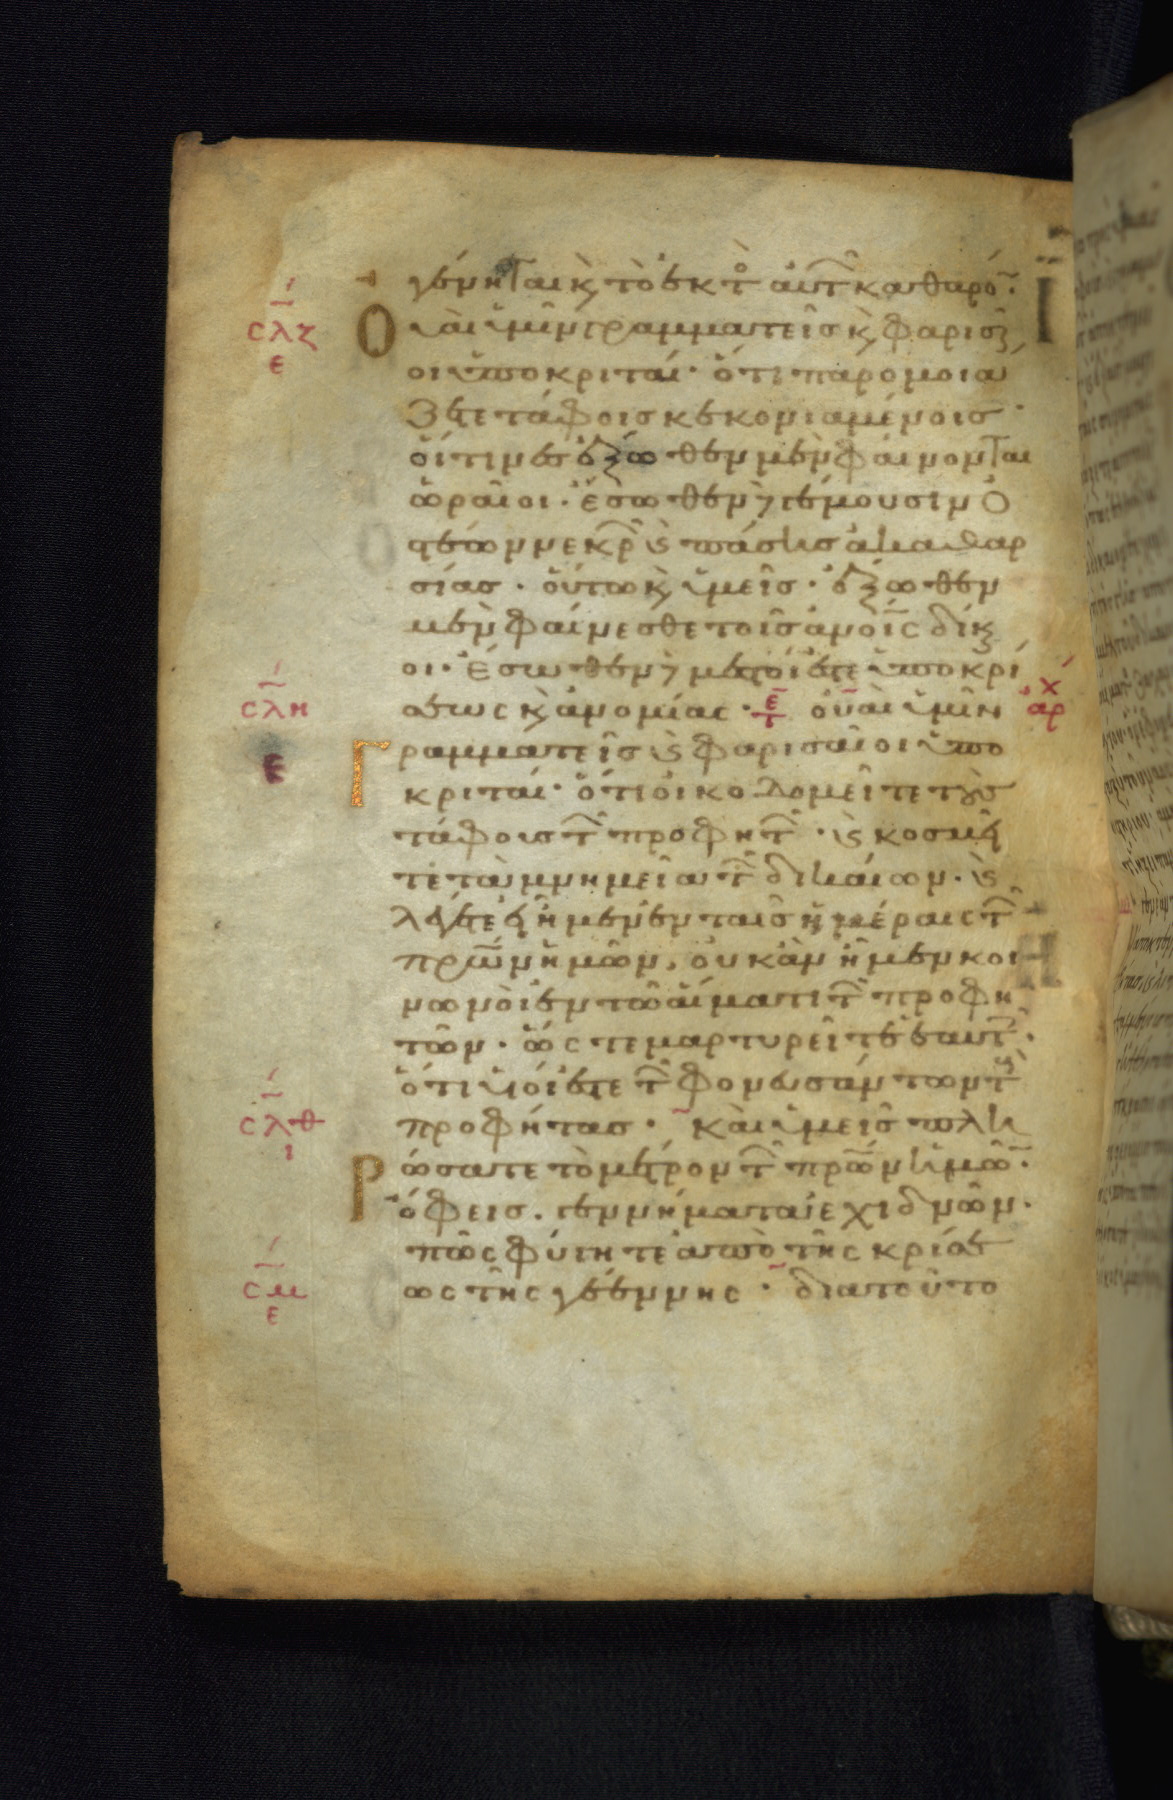 γένηται κ̀ τὸ ἐκτο αὐτ καθαρό
Οὐαὶ ὑμῖν γραμματεῖς κ̀ φαρισαῖ
σλζ
ε
οι ὑποκριταί· ὅτι παρομοιά
ζετε τάφοις κεκονιαμένοις·
οἵτινες ἔξωθεν μὲν φαίνονται
ὡραῖοι· ἔσωθεν γέμουσιν ὀ
στέων νεκρ κ̀ πάσης ἀκαθαρ
σίας· οὕτω κ̀ ὑμεῖς· ἔξωθεν
μὲν φαίνεσθε τοῖς ἀνοις δίκαι
οι· ἔσωθεν μεστοί ἐστε ὑποκρί
σλη
σεως κ̀ ἀνομίας· οὐαὶ ὑμῖν
αρχ
Γραμματεῖς κ̀ φαρισαῖοι ὑπο
ε
κριταί· ὅτι οἰκοδομεῖτε τοὺς
τάφους τ προφητ· κ̀ κοσμεῖ
τε τὰ μνημεῖα τ δικαίων· κ̀
λέγετε εἰ ἦμεν ἐν ταῖς ἡμέραις τ
πρων ἡμῶν, οὐκ ἂν ἦμεν κοι
νωνοὶ ἐν τῶ αἵματι τ προφη
τῶν· ὥστε μαρτυρεῖτε ἑαυτ·
ὅτι υἱοί ἐστε τ φονευσάντων τ
σλθ
ι
προφήτας· καὶ ὑμεῖς πλη
ρώσατε τὸ μέτρον τ πρων ὑμῶ·
ὄφεις. γεννήματα ἐχιδνῶν·
πῶς φύγητε ἀπὸ τῆς κρίσε
σμ
ε
ως τῆς γεέννης· διατοῦτο